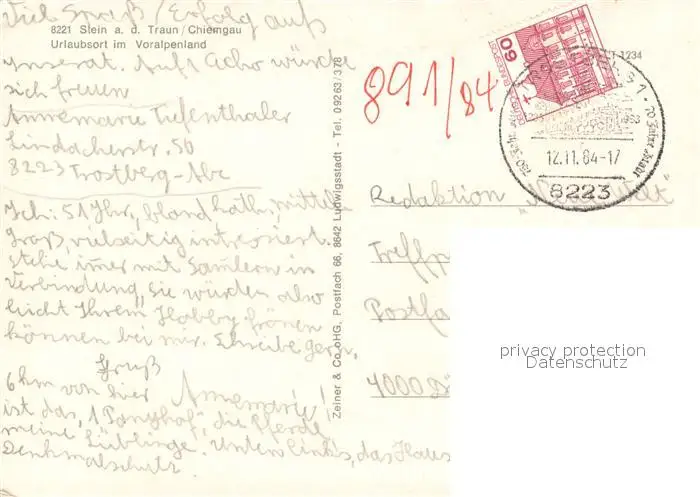 Viel Spaß / Erfolg aufs
8221 Stein a. d. Traun / Chiemgau
Urlaubsort im Voralpenland
Ynserat. Auf 1 Echo würde
sich freuen
Annemarie Tiefenthaler
Lindacherstr. 50
8223 Trostberg-Abc
Ich: 51 Jhr., blond, kath., mittel
groß, vielseitig intressiert.
stehe immer mit Samlern in
Verbindung, Sie würden also
leicht Ihrem Hobby frönen
können bei mir. Schreibe gern.
Gruß
Annemarie!
6 km von hier
ist das "1 Ponyhof", die Pferde
meine Lieblinge. Unten links, das Haus
Denkmalschutz.
Zeiner & Co. oHG, Postfach 66, 8642 Ludwigsstadt - Tel. 09263/378
891/84
60
DEUTSCHE BUNDESPOST
1234
TROSTBERG 1
12.11.84-17
8223
Redaktion
Treffp
Postfa
4000 D
privacy protection
Datenschutz